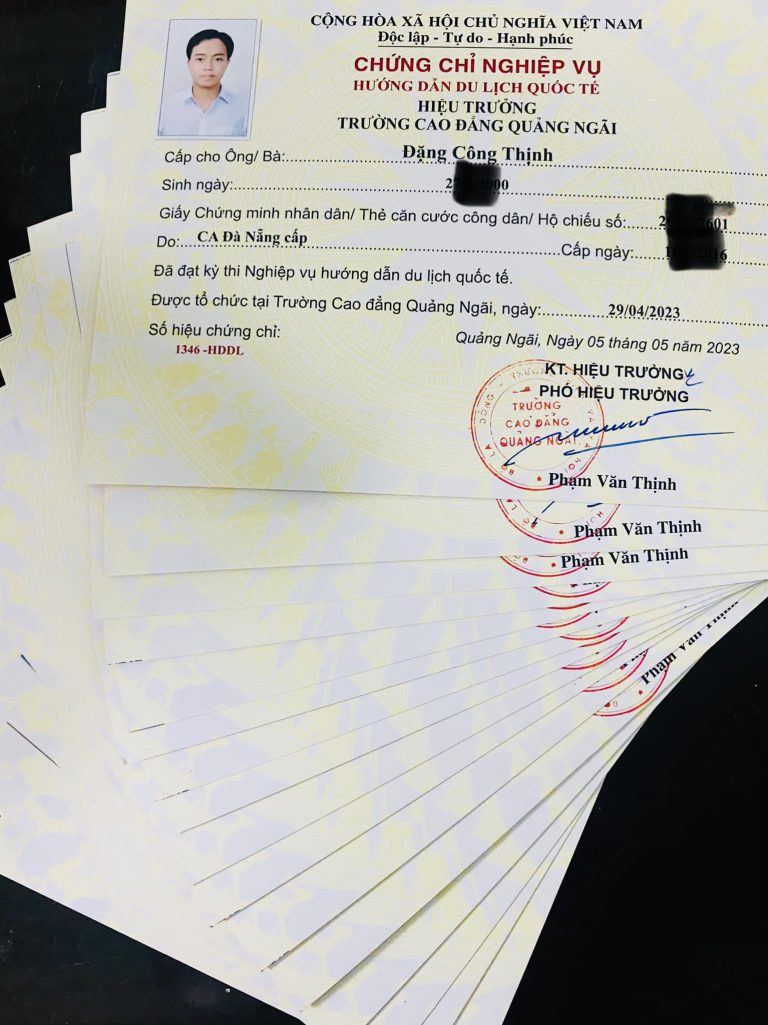 CỘNG HÒA XÃ HỘI CHỦ NGHĨA VIỆT NAM
Độc lập - Tự do - Hạnh phúc
CHỨNG CHỈ NGHIỆP VỤ
HƯỚNG DẪN DU LỊCH QUỐC TẾ
HIỆU TRƯỞNG
TRƯỜNG CAO ĐẲNG QUẢNG NGÃI
Cấp cho Ông/ Bà: Đặng Công Thịnh
Sinh ngày: 2 2000
Giấy Chứng minh nhân dân/ Thẻ căn cước công dân/ Hộ chiếu số: 2 601
Do: CA Đà Nẵng cấp Cấp ngày: 2016
Đã đạt kỳ thi Nghiệp vụ hướng dẫn du lịch quốc tế.
Được tổ chức tại Trường Cao đẳng Quảng Ngãi, ngày: 29/04/2023
Số hiệu chứng chỉ:
1346 -HDDL
Quảng Ngãi, Ngày 05 tháng 05 năm 2023
KT. HIỆU TRƯỞNG
PHÓ HIỆU TRƯỞNG
TRƯỜNG
CAO ĐẲNG
QUẢNG NGÃI
Phạm Văn Thịnh
Phạm Văn Thịnh
Phạm Văn Thịnh
Phạm Văn